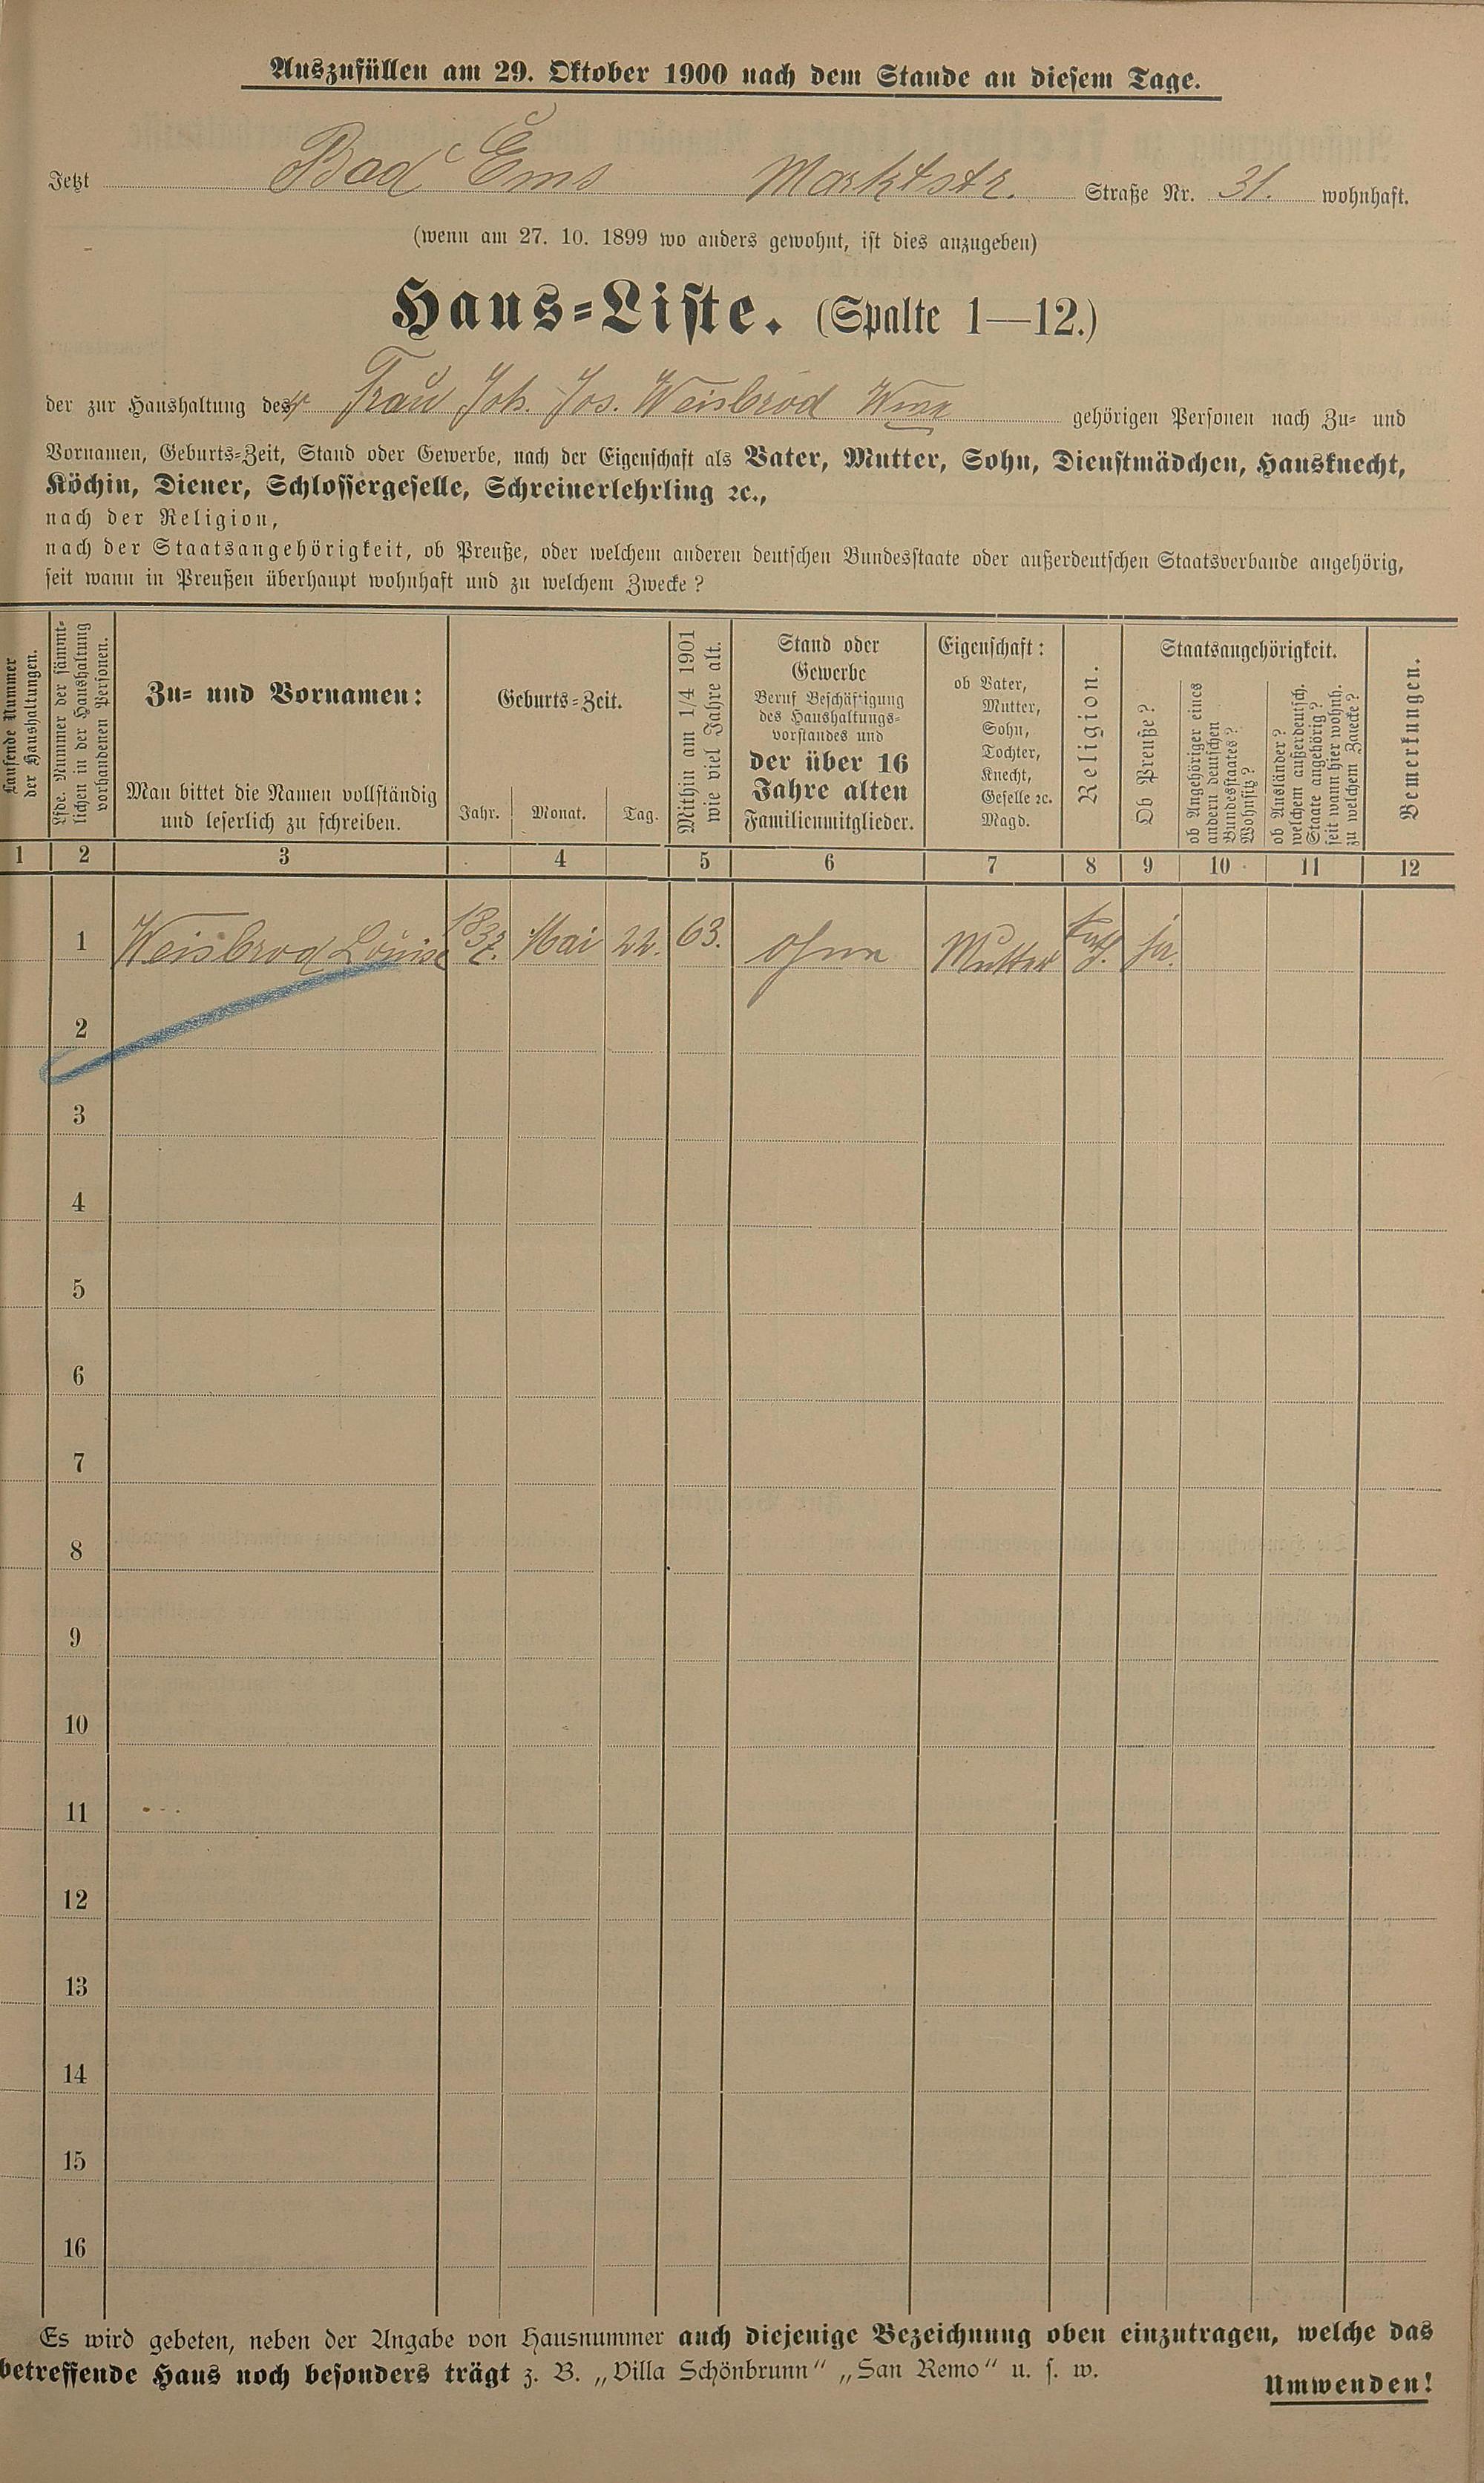 Auszufüllen am 29. Oktober 1900 nach dem Stande an diesem Tage.
Jetzt Bad Ems Marktstr. Straße Nr. 31. wohnhaft.
(wenn am 27. 10. 1899 wo anders gewohnt, ist dies anzugeben)
Haus-Liste. (Spalte 1—12.)
der zur Haushaltung des r Frau Joh. Jos. Weisbrod Wwe gehörigen Personen nach Zu- und
Vornamen, Geburts-Zeit, Stand oder Gewerbe, nach der Eigenschaft als Vater, Mutter, Sohn, Dienstmädchen, Hausknecht,
Köchin, Diener, Schlossergeselle, Schreinerlehrling ꝛc.,
nach der Religion,
nach der Staatsangehörigkeit, ob Preuße, oder welchem anderen deutschen Bundesstaate oder außerdeutschen Staatsverbande angehörig,
seit wann in Preußen überhaupt wohnhaft und zu welchem Zwecke?
Laufende Nummer
der Haushaltungen.
Lfde. Nummer der sämmt-
lichen in der Haushaltung
vorhandenen Personen.
Zu- und Vornamen:
Man bittet die Namen vollständig
und leserlich zu schreiben.
Geburts-Zeit.
Jahr. Monat. Tag.
Mithin am 1/4 1901
wie viel Jahre alt.
Stand oder
Gewerbe
Beruf Beschäftigung
des Haushaltungs-
vorstandes und
der über 16
Jahre alten
Familienmitglieder.
Eigenschaft:
ob Vater,
Mutter,
Sohn,
Tochter,
Knecht,
Geselle ꝛc.
Magd.
Religion.
Staatsangehörigkeit.
Ob Preuße?
ob Angehöriger eines
andern deutschen
Bundesstaates?
Wohnsitz?
ob Ausländer?
welchem außerdeutsch.
Staate angehörig?
seit wann hier wohnh.
zu welchem Zwecke?
Bemerkungen.
1 2 3 4 5 6 7 8 9 10 11 12
1 Weisbrod Louise 1837. Mai 22. 63. ohne Mutter kath. ja.
2
3
4
5
6
7
8
9
10
11
12
13
14
15
16
Es wird gebeten, neben der Angabe von Hausnummer auch diejenige Bezeichnung oben einzutragen, welche das
betreffende Haus noch besonders trägt z. B. „Villa Schönbrunn“ „San Remo“ u. s. w.
Umwenden!